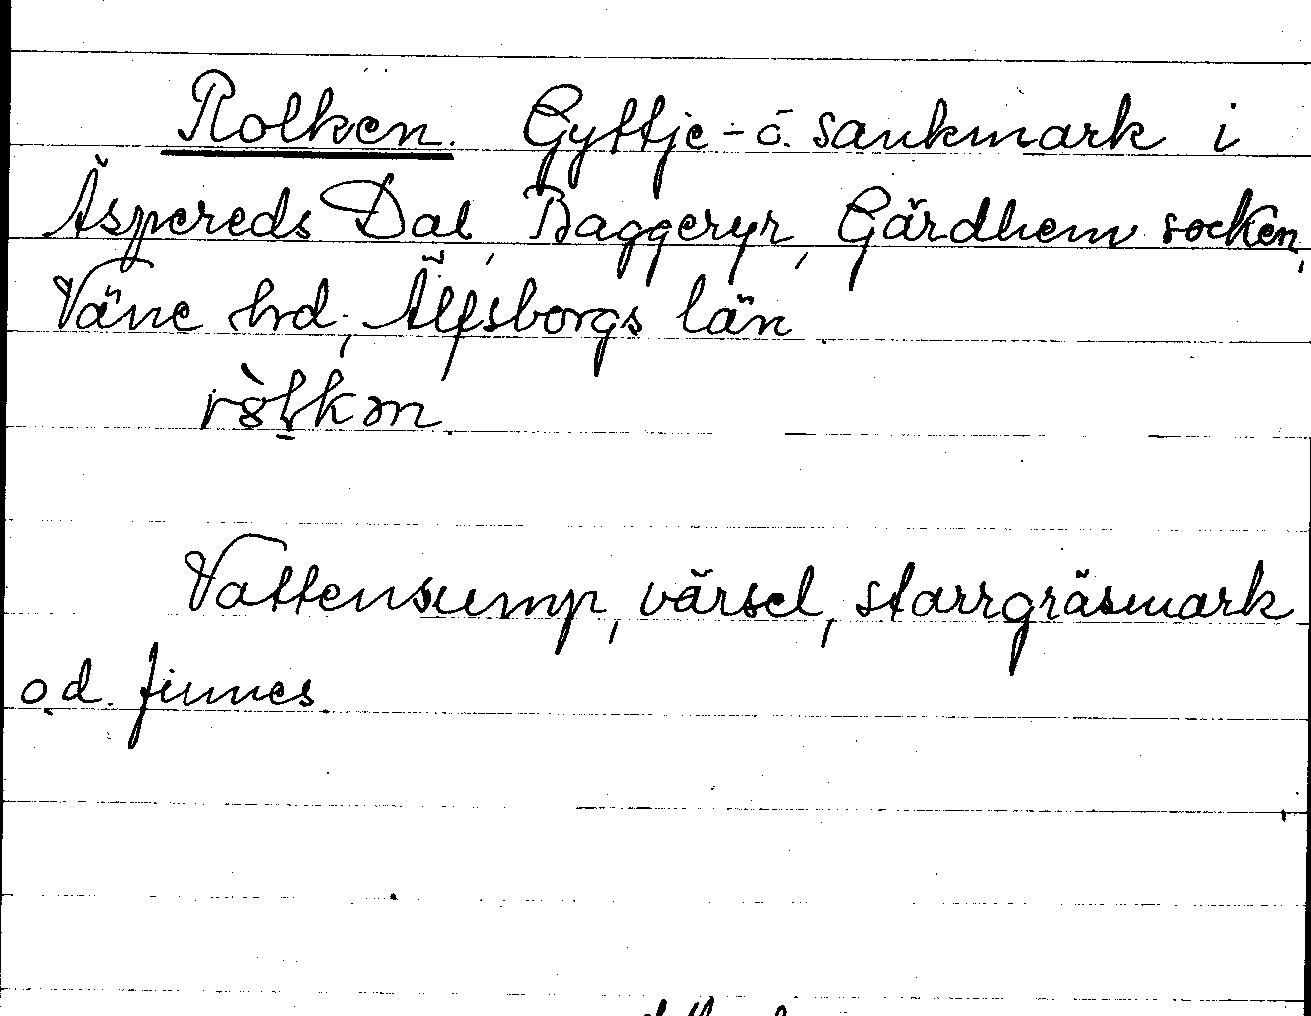 Rolken. Gyttje- o. sankmark i
Äspereds Dal, Baggeryr, Gärdhem socken,
Väne hrd, Älfsborgs län
Vattensump, värsel, starrgräsmark
o.d. finnes.